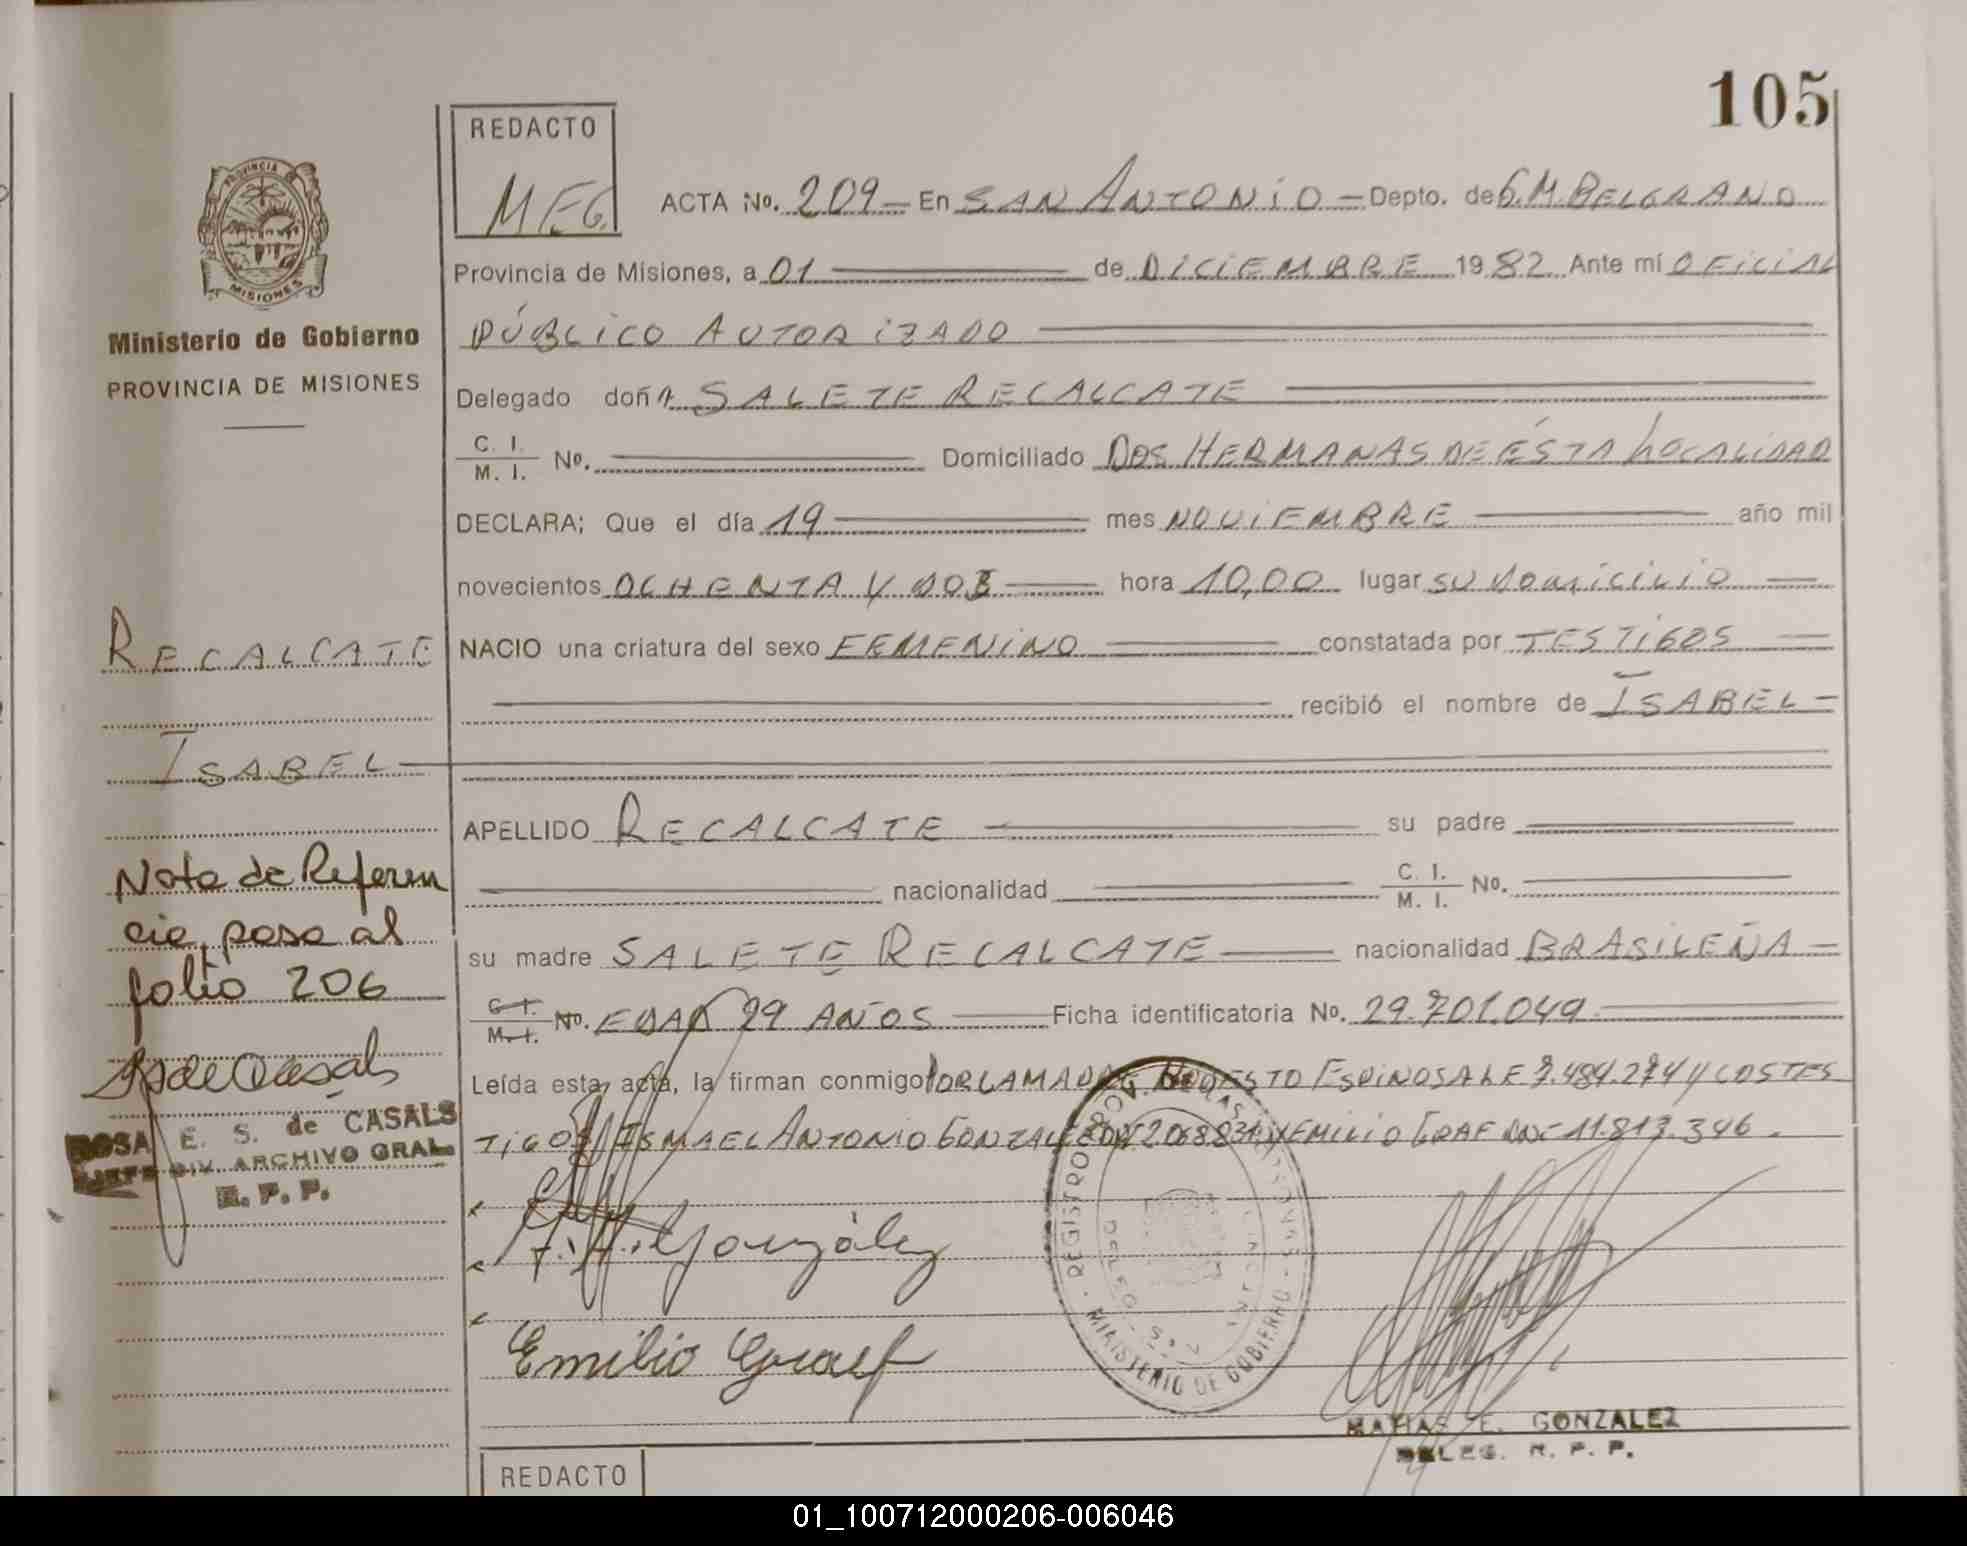 105
REDACTO
MEG.
ACTA No. 209 - En SAN ANTONIO - Depto. de G.M. BELGRANO
Provincia de Misiones, a 01 de DICIEMBRE 1982 Ante mí OFICIAL
PÚBLICO AUTORIZADO
Delegado doña SALETE RECALCATE
C. I.
M. I. No. Domiciliado DOS HERMANAS DE ÉSTA LOCALIDAD
DECLARA; Que el día 19 mes NOVIEMBRE año mil
novecientos OCHENTA Y DOS hora 10,00 lugar SU DOMICILIO
NACIO una criatura del sexo FEMENINO constatada por TESTIGOS
recibió el nombre de ISABEL -
APELLIDO RECALCATE su padre
nacionalidad C. I.
M. I. No.
su madre SALETE RECALCATE nacionalidad BRASILEÑA -
C. I.
M. I. No. EDAD 29 AÑOS Ficha identificatoria No. 29.701.049
Leída esta acta, la firman conmigo ESPINOSA L.E 7.484.274 Y COSTES
TIGOS ISMAEL ANTONIO GONZALEZ Y EMILIO GRAF DNI 11.813.346.
González
Emilio Graef
REGISTRO PROV. DE LAS PERSONAS - MINISTERIO DE GOBIERNO
MATIAS E. GONZALEZ
DELEG. R. P. P.
PROVINCIA DE
MISIONES
Ministerio de Gobierno
PROVINCIA DE MISIONES
RECALCATE
ISABEL
Nota de Referen
cia, pasa al
folio 206
ROSA E. S. de CASALS
JEFE DIV. ARCHIVO GRAL.
R. P. P.
REDACTO
01_100712000206-006046